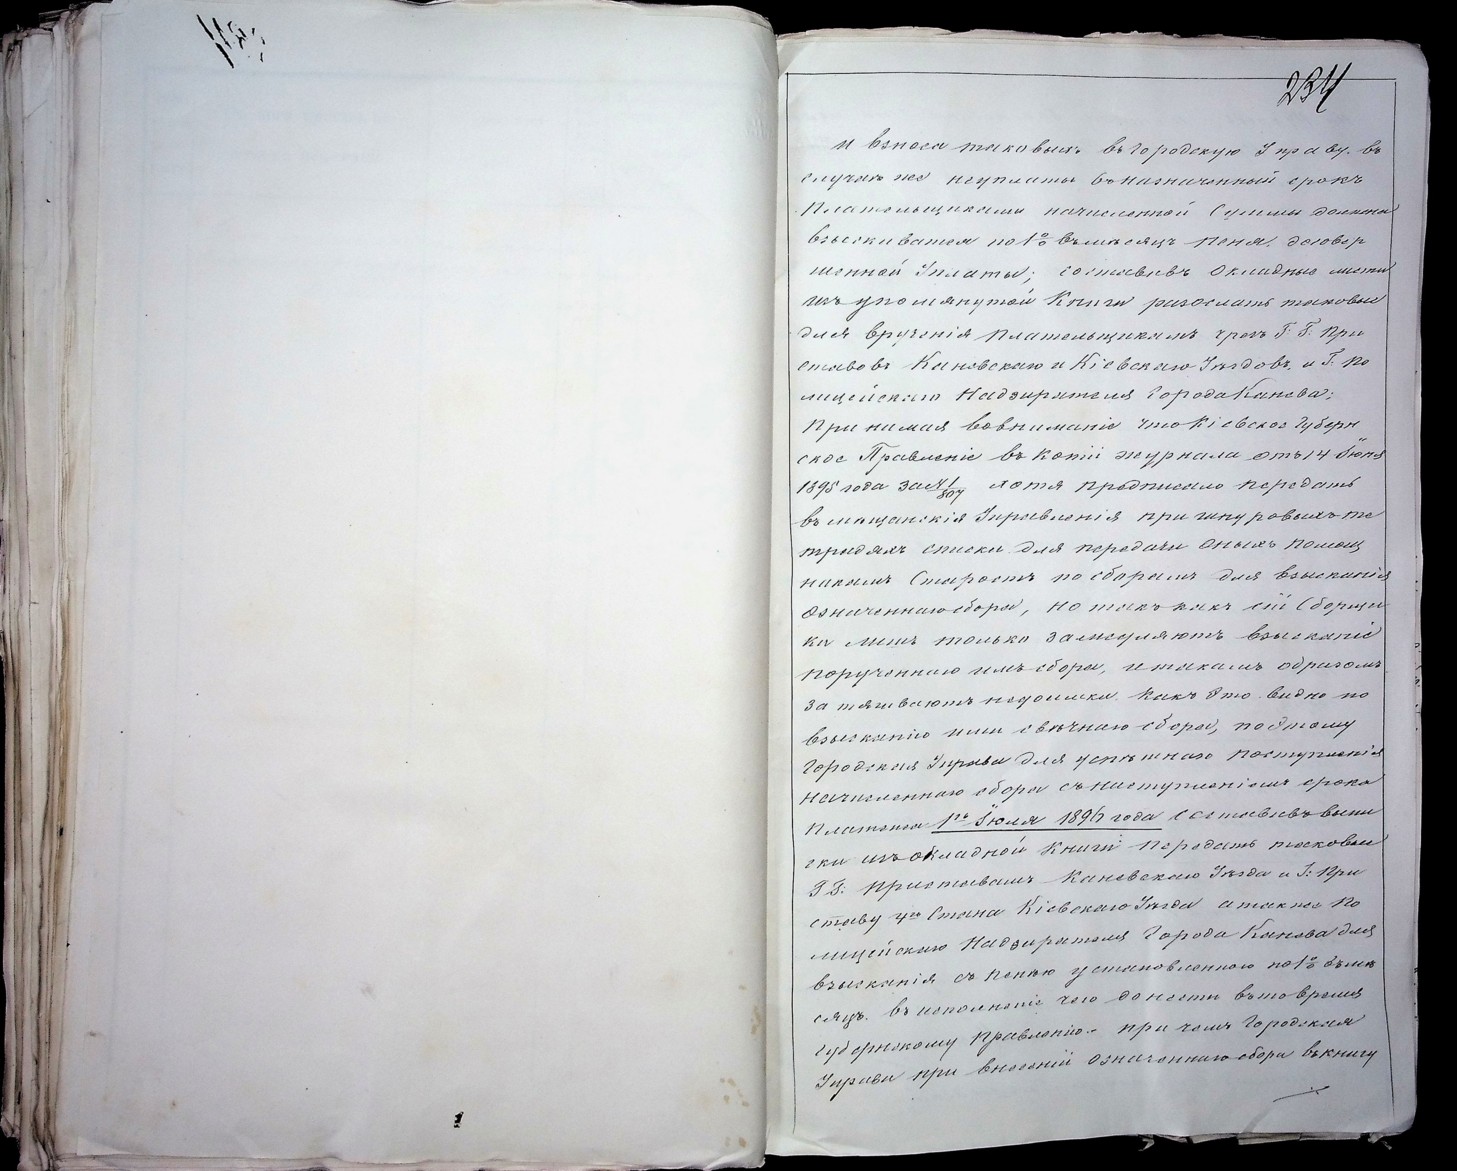 234
и взноса таковыхъ въ Городскую Управу. въ
случаѣ же неуплаты въ назначенный срокъ
Плательщиками начисленной Суммы должна
взыскиватся по 1% въ мѣсяцъ пеня. до совер
шенной Уплаты; составивъ Окладные листы
изъ упомянутой Книги разослать таковые
для врученія Плательщикамъ чрезъ Г. Г. При
ставовъ Каневскаго и Кіевскаго Уѣздовъ, и Г. По
лицейскаго Надзирателя Города Канева;
Принимая во вниманіе что Кіевское Губерн
ское Правленіе въ копіи журнала отъ 14 Іюня
1895 года за № 1/807 хотя предписало передать
въ мѣщанскія Управленія при шнуровыхъ те
традяхъ списки для передачи Оныхъ Помощ
никамъ Старостъ по сборамъ для взысканія
означеннаго сбора, но такъ какъ сіи Сборщи
ки лишъ только замедляютъ взысканіе
порученнаго имъ сбора, и такимъ образомъ
затягиваютъ недоимки. какъ Это видно по
взысканію ими свѣчнаго сбора, поэтому
Городская Управа для успѣшнаго поступленія
начисленнаго сбора съ наступленіемъ срока
Платежа 1го Іюля 1896 года составивъ выпи
ски изъ окладной книги передать таковые
Г Г: Приставамъ Каневскаго Уѣзда и Г: При
ставу 4го Стана Кіевскаго Уѣзда а также По
лицейскаго Надзирателя Города Канева для
взысканія съ пенею установленною по 1% въ мѣ
сяцъ. въ исполненіе чего донести въ то время
Губернскому Правленію. при чемъ Городская
Управа при внесеніи Означеннаго сбора въ книгу